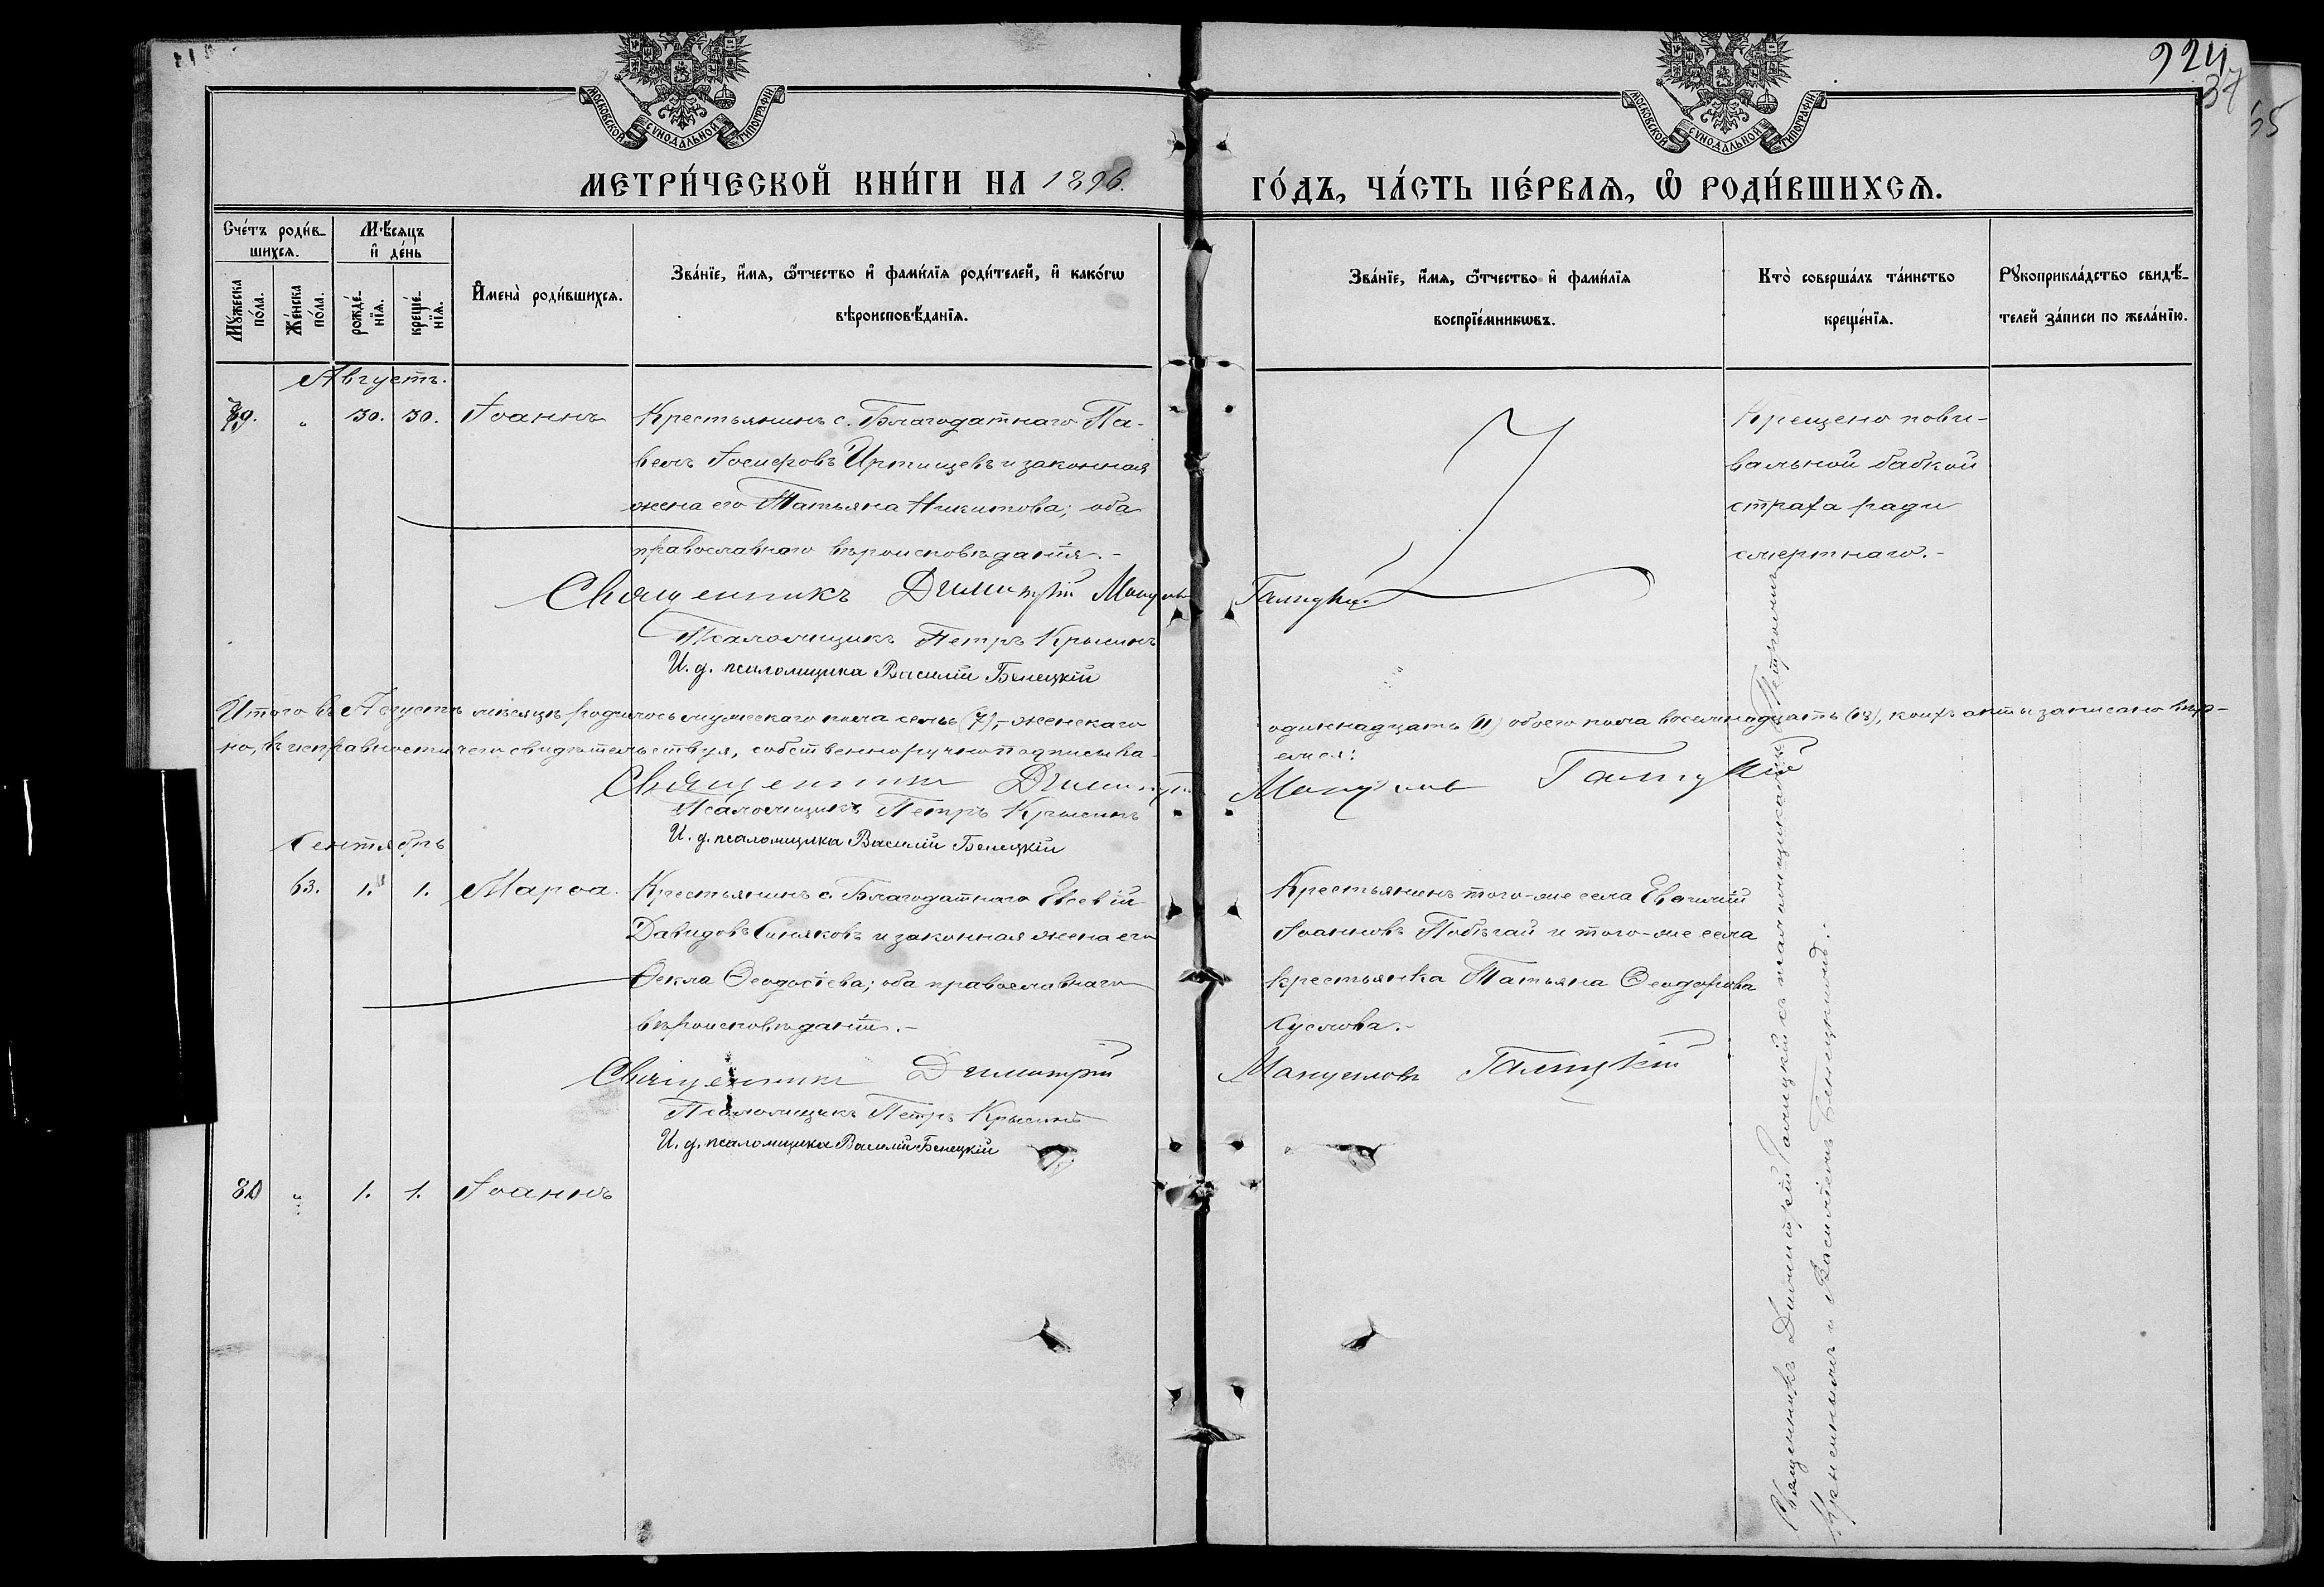 МОСКОВСКОЙ СУНОДАЛЬНОЙ ТИПОГРАФІИ
МОСКОВСКОЙ СУНОДАЛЬНОЙ ТИПОГРАФІИ
924
37
МЕТРИ́ЧЕСКОЙ КНИ́ГИ НА 1896. ГО́ДЪ, ЧА́СТЬ ПЕ́РВАѦ, Ѡ҆ РОДИ́ВШИХСѦ.
Сче́тъ роди́в-
шихсѧ.
Мѣ́сѧцъ
и҆ де́нь
Мꙋ́жеска по́ла.
Же́нска по́ла.
рожде́-
нїѧ.
креще́-
нїѧ.
И҆мена̀ роди́вшихсѧ.
Зва́нїе, и҆́мѧ, ѻ҆́тчество и҆ фами́лїѧ роди́телей, и҆ како́гѡ
вѣроисповѣ́данїѧ.
Зва́нїе, и҆́мѧ, ѻ҆́тчество и҆ фами́лїѧ
воспрїе́мникѡвъ.
Кто̀ соверша́лъ та́инство
креще́нїѧ.
Рꙋкоприкла́дство свидѣ́-
телей за́писи по жела́нїю.
Августъ.
79. " 30. 30. Іоаннъ Крестьянинъ с. Благодатнаго Па-
велъ Іосифовъ Иртищевъ и законная
жена его Татьяна Никитова; оба
православнаго вѣроисповѣданія.-
Крещено пови-
вальной бабкой
страха ради
смертнаго.-
Священникъ Димитрій Мануиловъ Галицкій
Псаломщикъ Петръ Крысинъ
И. д. псаломщика Василій Бенецкій
Итого въ Августѣ мѣсяцѣ родилось мужескаго пола семь (7),- женскаго одиннадцать (11) обоего пола восемнадцать (18), коихъ акты записано вѣр-
но, въ исправности чего свидѣтельствуя, собственноручно подписыва-
емся:
Священникъ Димитрій Мануиловъ Галицкій
Псаломщикъ Петръ Крысинъ
И. д. псаломщика Василій Бенецкій
Сентябрь
63. 1. 1. Марѳа. Крестьянинъ с. Благодатнаго Евсевій
Давидовъ Синяковъ и законная жена его
Ѳекла Ѳеодосіева; оба православнаго
вѣроисповѣданія.-
Крестьянинъ того-же села Евѳимій
Іоанновъ Побѣгай и того-же села
крестьянка Татьяна Ѳеодорова
Суслова.-
Священникъ Димитрій Мануиловъ Галицкій
Псаломщикъ Петръ Крысинъ
И. д. псаломщика Василій Бенецкій
80 " 1. 1. Іоаннъ
Священникъ Димитрій Галицкій съ псаломщиками Петромъ
Крысинымъ и Василіемъ Бенецкимъ.-